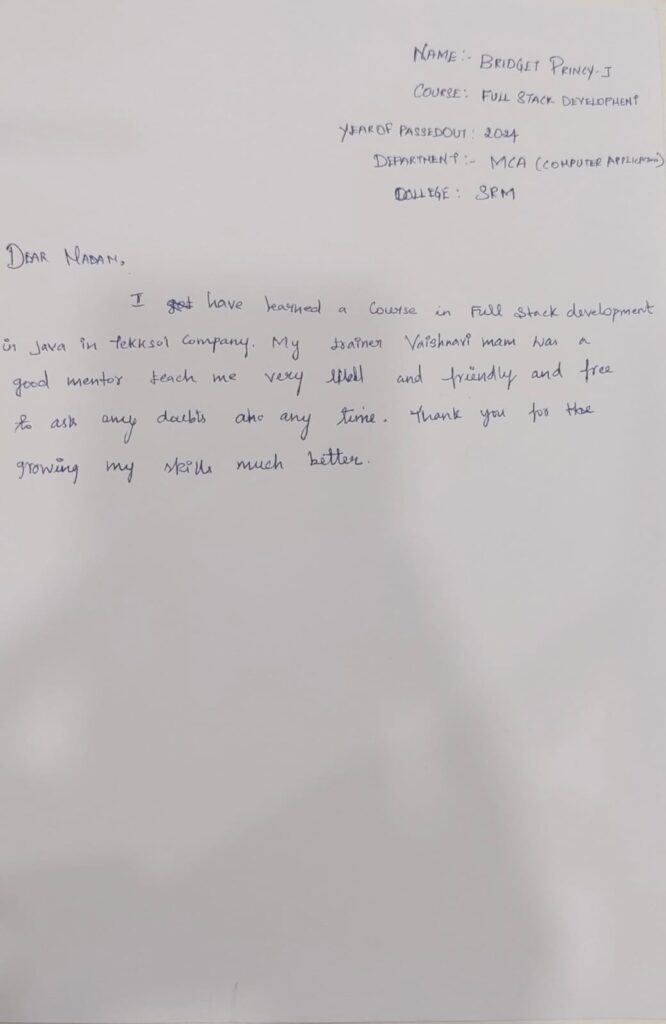 NAME:- BRIDGET PRINCY-I
COURSE: FULL STACK DEVELOPMENT
YEAR OF PASSEDOUT: 2024
DEPARTMENT:- MCA (COMPUTER APPLICATION)
COLLEGE: SRM
DEAR MADAM,
I have learned a Course in Full Stack development
in Java in Tekksol Company. My trainer Vaishnavi mam was a
good mentor teach me very well and friendly and free
to ask any doubts any time. Thank you for the
growing my skills much better.